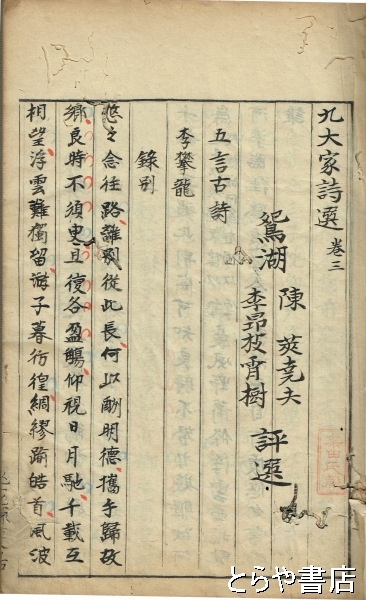 九大家詩選 卷三
鴛湖 陳莢堯夫 李昂枝霄樹 評選
五言古詩
李攀龍
錄別
悠々念往路離別從此長何以酬明德攜手歸故
鄉良時不須臾且復各盈觴仰視日月馳千載互
相望浮雲難獨留游子暮彷徨綢繆踰皓首風波
とらや書店